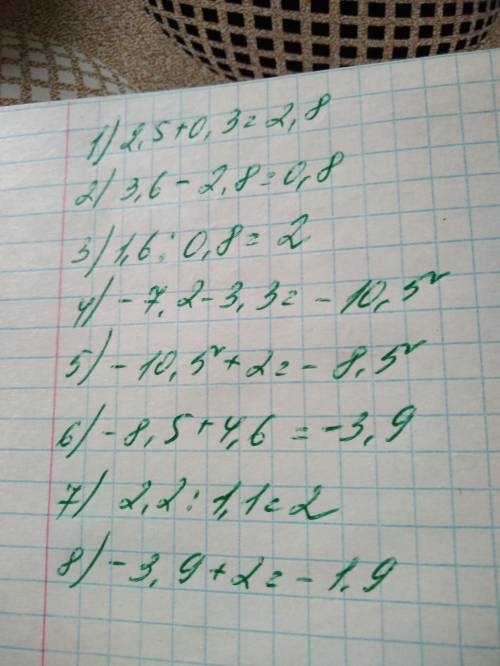 1) 2,5+0,3=2,8
2) 3,6-2,8=0,8
3) 1,6:0,8=2
4) -7,2-3,3=-10,5
5) -10,5+2=-8,5
6) -8,5+4,6=-3,9
7) 2,2:1,1=2
8) -3,9+2=-1,9